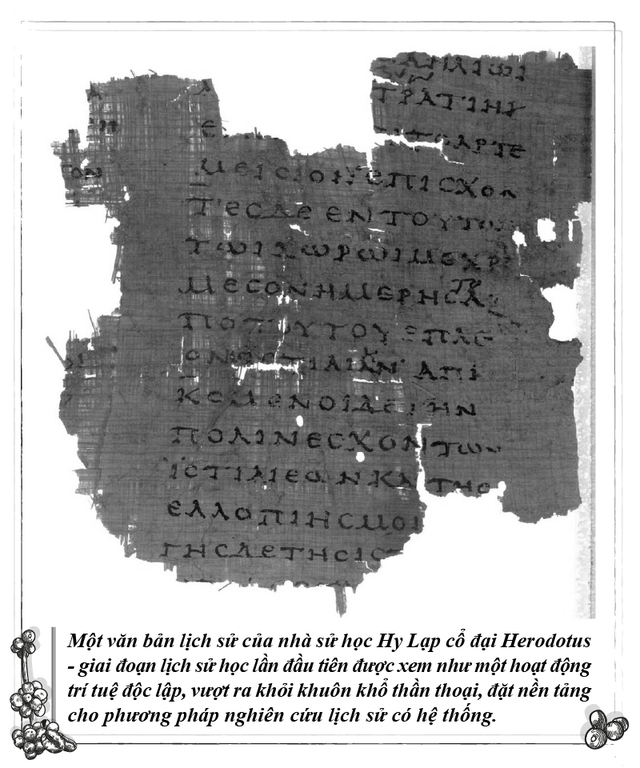 ΤΡΑΤΙΗΝ
ΑΡΤΕ
ΜΕΙCΙΟΝ ΕΠΙCΧΟΝ
ΤΕCΔΕ ΕΝΤΟΥΤΩ
ΤΩΙΧΩΡΩΙΜΕΧΡ
ΜΕCΟΝΗΜΕΡΗC
ΠΟΤΟΥΤΟΥ ΕΠΛΕ
ΑΠΙ
ΚΟΜΕΝΟΙΔΕΤΗΝ
ΠΟΛΙΝΕCΧΟΝΤΩΝ
ΙCΤΙΑΙΕΩΝΚΑΙΤΗC
ΕΛΛΟΠΙΗCΜΟΙ
ΓΗCΔΕΤΗCΙCΤ
Một văn bản lịch sử của nhà sử học Hy Lạp cổ đại Herodotus
- giai đoạn lịch sử học lần đầu tiên được xem như một hoạt động
trí tuệ độc lập, vượt ra khỏi khuôn khổ thần thoại, đặt nền tảng
cho phương pháp nghiên cứu lịch sử có hệ thống.